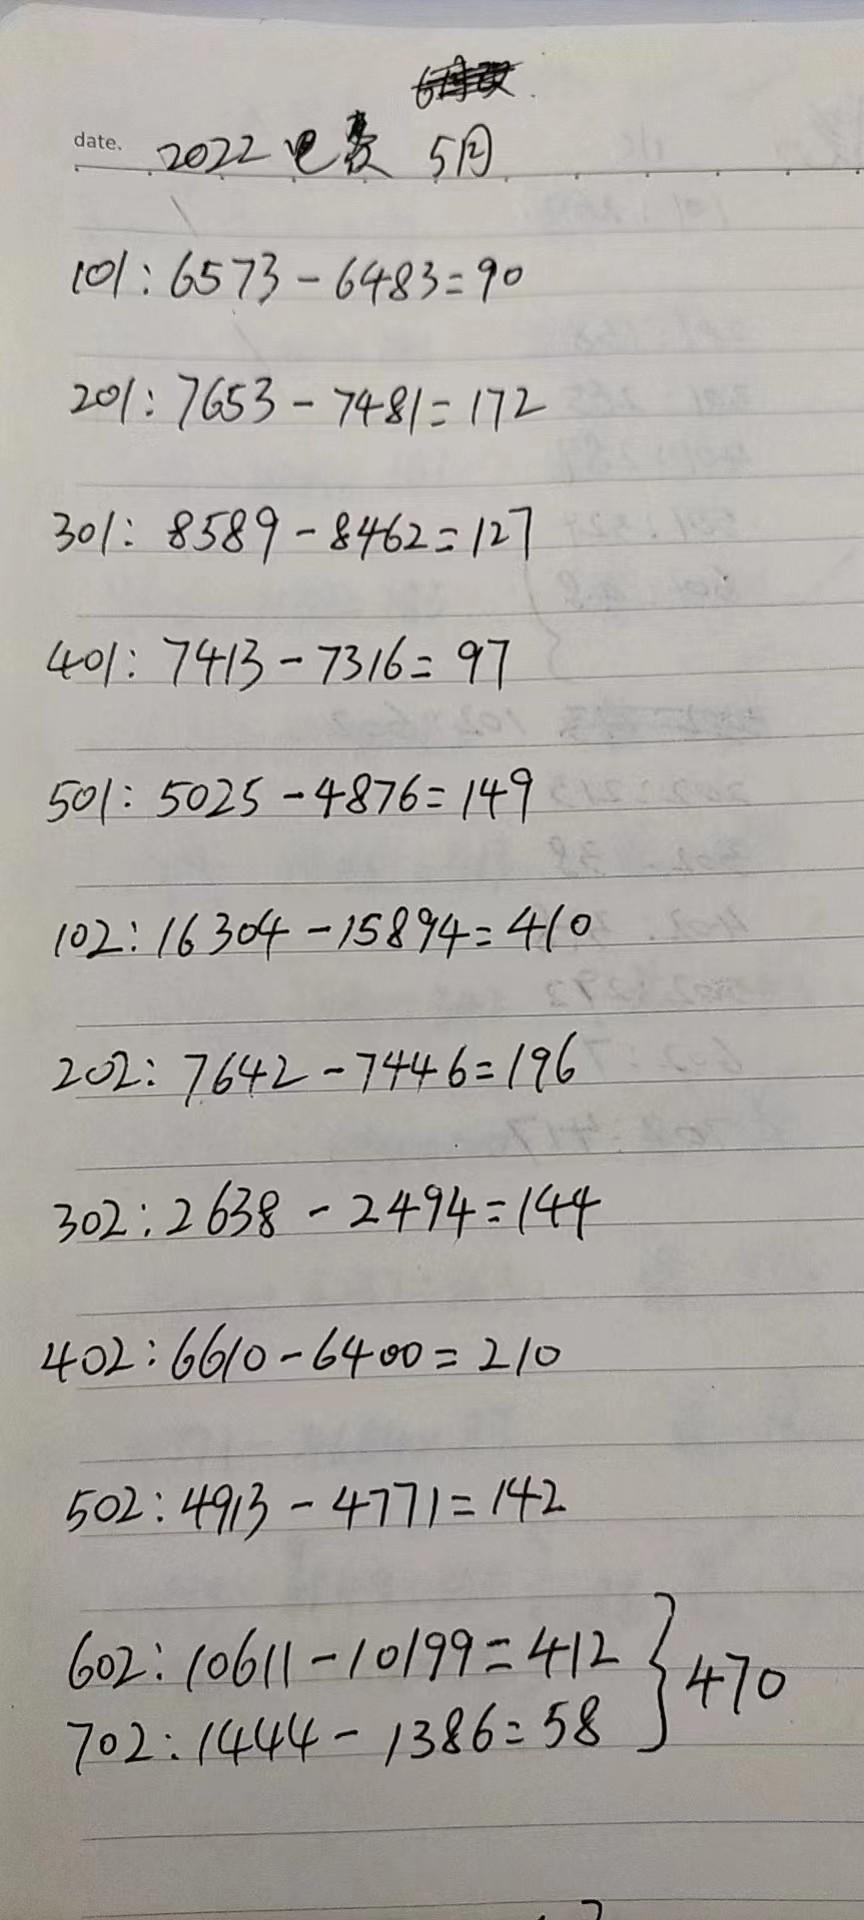 date. 2022 电费 5月
101:6573-6483=90
201:7653-7481=172
301:8589-8462=127
401:7413-7316=97
501:5025-4876=149
102:16304-15894=410
202:7642-7446=196
302:2638-2494=144
402:6610-6400=210
502:4913-4771=142
602:10611-10199=412
702:1444-1386=58 } 470